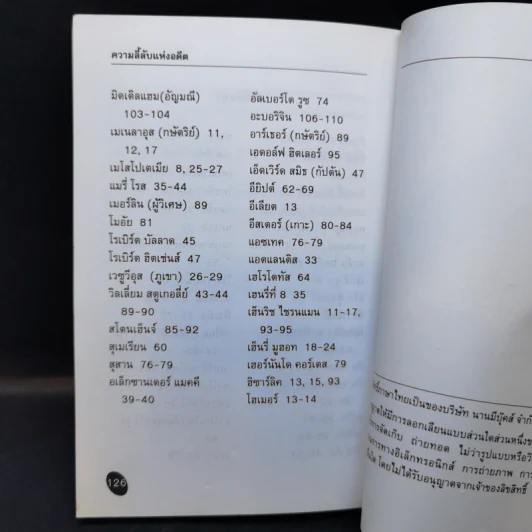 ความลี้ลับแห่งอดีต
มิดเดิลแฮม(อัญมณี)
103-104
เมเนลาอุส (กษัตริย์) 11,
12, 17
เมโสโปเตเมีย 8, 25-27
แมรี่ โรส 35-44
เมอร์ลิน (ผู้วิเศษ) 89
โมอัย 81
โรเบิร์ต บัลลาด 45
โรเบิร์ต ฮิตเช่นส์ 47
เวซูวีอุส (ภูเขา) 26-29
วิลเลี่ยม สตูเกอลี่ย์ 43-44
89-90
สโตนเฮ็นจ์ 85-92
สุเมเรียน 60
สุสาน 76-79
อเล็กซานเดอร์ แมคคี
39-40
อัลเบอร์โต รูซ 74
อะบอริจิน 106-110
อาร์เธอร์ (กษัตริย์) 89
เอดอล์ฟ ฮิตเลอร์ 95
เอ็ดเวิร์ด สมิธ (กัปตัน) 47
อียิปต์ 62-69
อีเลียด 13
อีสเตอร์ (เกาะ) 80-84
แอซเทค 76-79
แอตแลนติส 33
เฮโรโดทัส 64
เฮนรี่ที่ 8 35
เฮ็นริช ไชรนแมน 11-17,
93-95
เฮ็นรี่ มูฮอท 18-24
เฮอร์นันโด คอร์เตส 79
ฮิซาร์ลิค 13, 15, 93
โฮเมอร์ 13-14
126
ธิ์ภาษาไทยเป็นของบริษัท นานมีบุ๊คส์ จำกั
ให้มีการลอกเลียนแบบส่วนใดส่วนหนึ่งข
การจัดเก็บ ถ่ายทอด ไม่ว่ารูปแบบหรือวิ
การทางอิเล็กทรอนิกส์ การถ่ายภาพ กา
ใด โดยไม่ได้รับอนุญาตจากเจ้าของลิขสิทธิ์